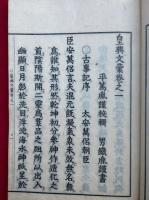 皇典文彙卷之一
平篤胤謹校輯 男
〇古事記序
太安萬侶朝臣
臣安萬侶言夫混元既凝氣象未效無名無
爲誰知其形然乾坤初分參神作造化之
首陰陽斯開二靈爲群品之祖所以出入
幽顯日月彰於洗目浮沈海水神祇呈於